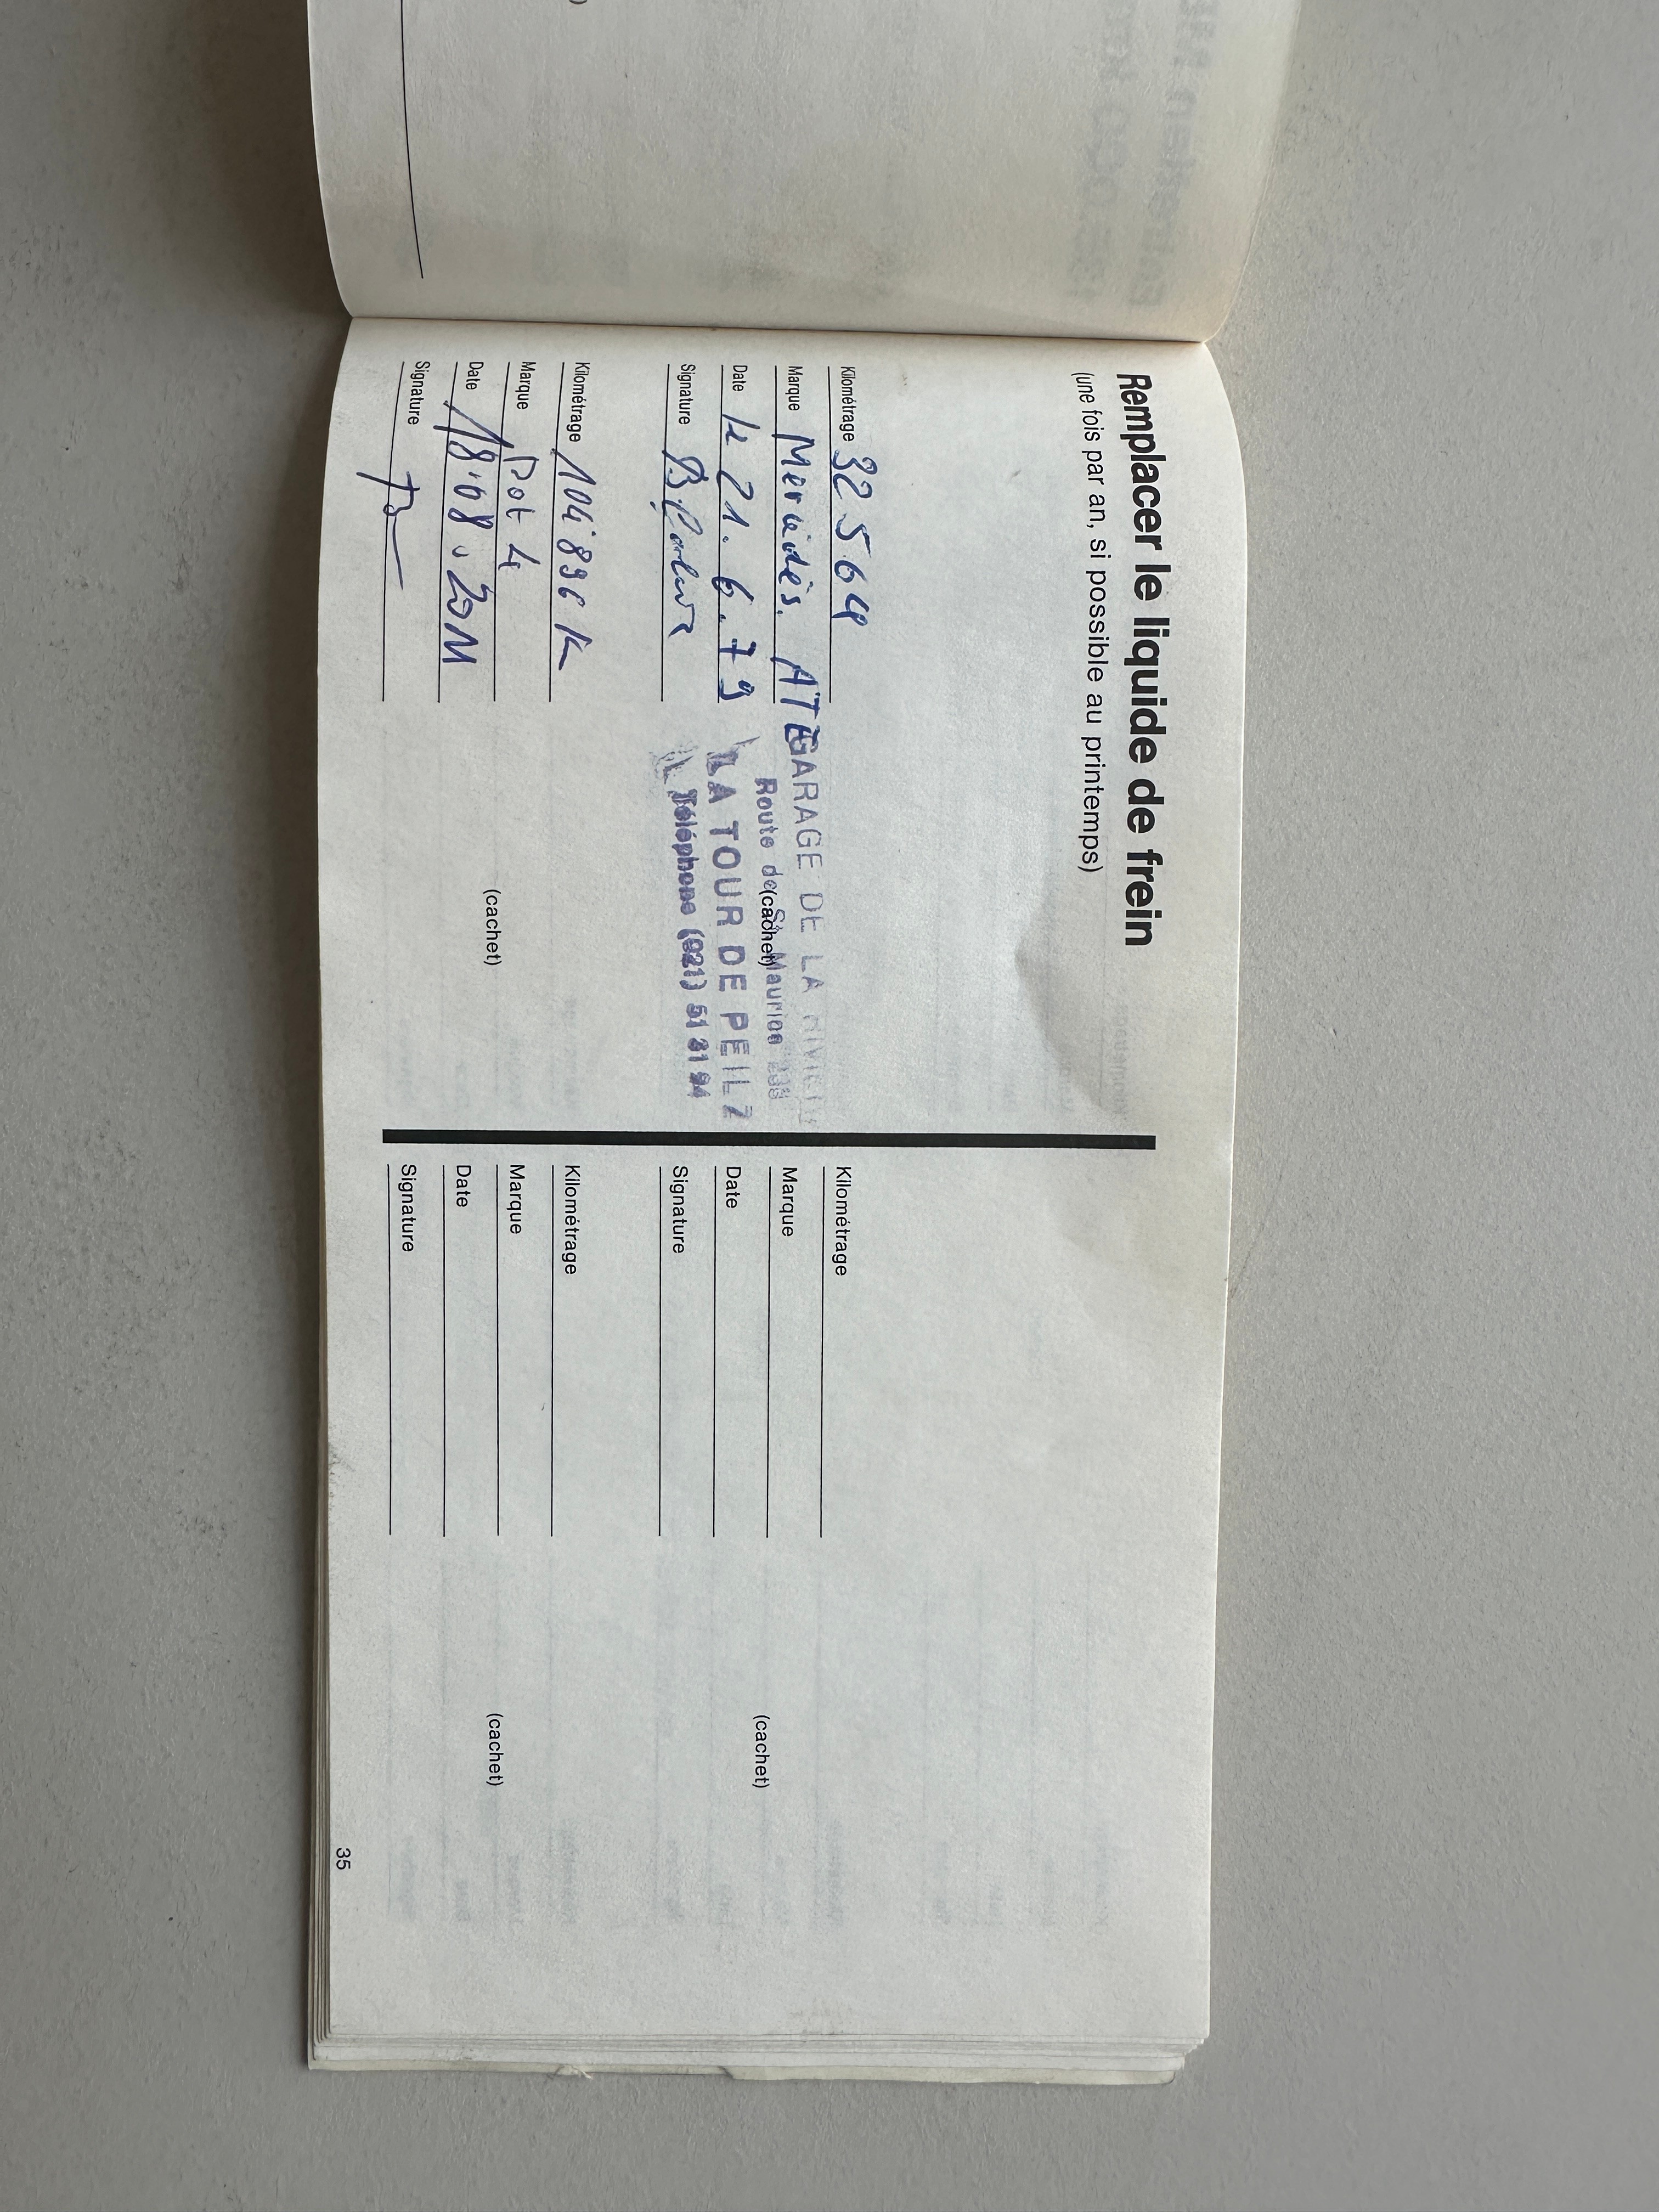 Remplacer le liquide de frein
(une fois par an, si possible au printemps)
Kilométrage 32 564
Marque Mercédès. ATE
Date le 21. 6. 79
Signature
GARAGE DE LA RIVIERA
Route de St Maurice 233
(cachet)
LA TOUR DE PEILZ
Téléphone (021) 51 31 94
Kilométrage 104'896 K
Marque Dot 4
Date 18.08.2011
Signature
(cachet)
Kilométrage
Marque
Date
Signature
(cachet)
Kilométrage
Marque
Date
Signature
(cachet)
35